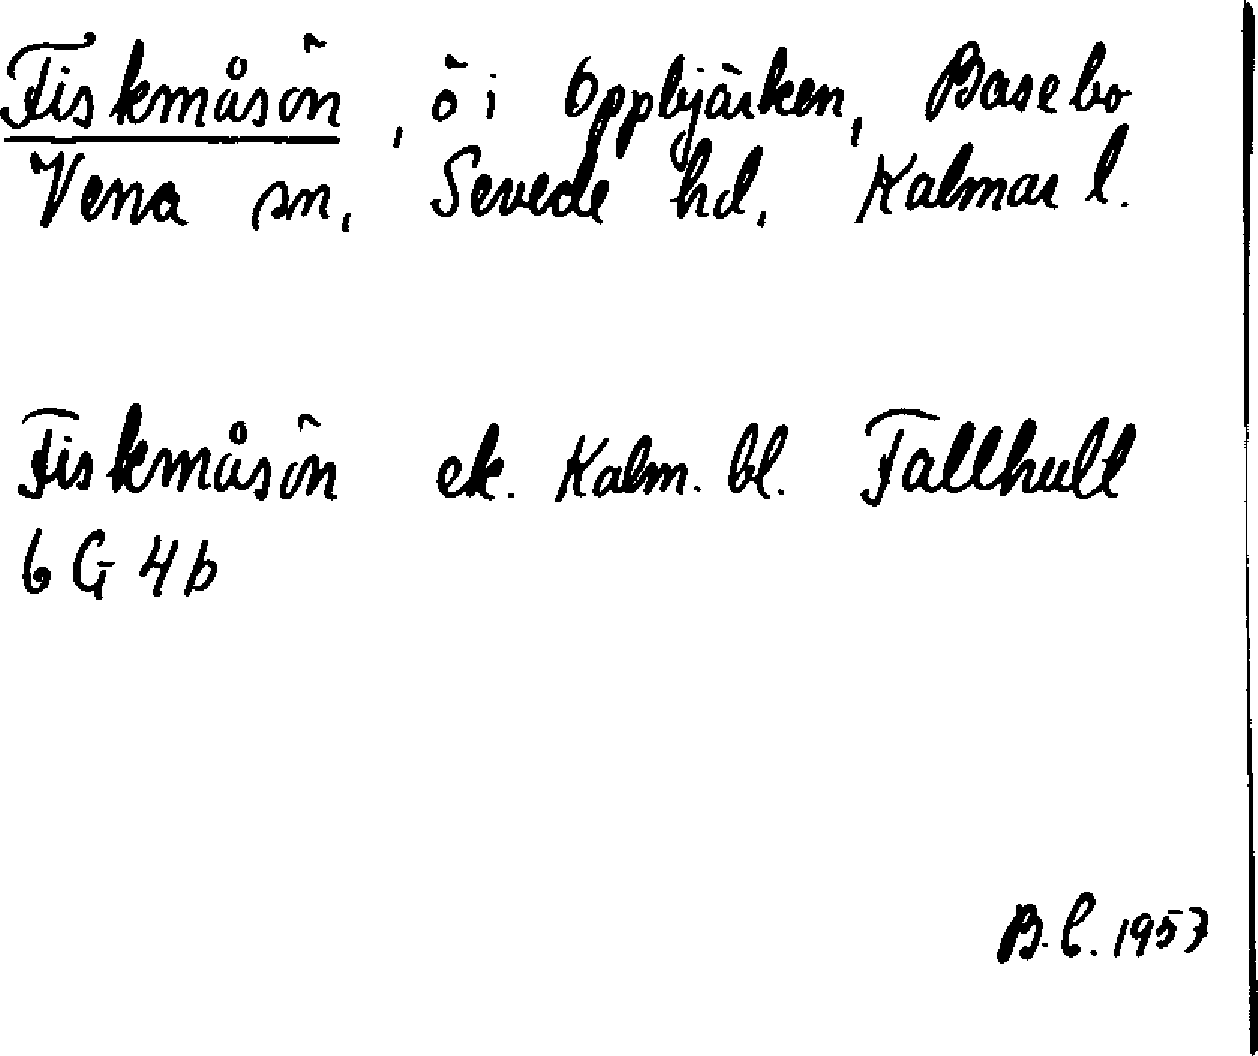 Fiskmåsön, ö i Oppbjärken, Basebo
Vena sn, Sevede hd, Kalmar l.
Fiskmåsön ek. Kalm. bl. Fallhult
6 G 4 b
B. C. 1957